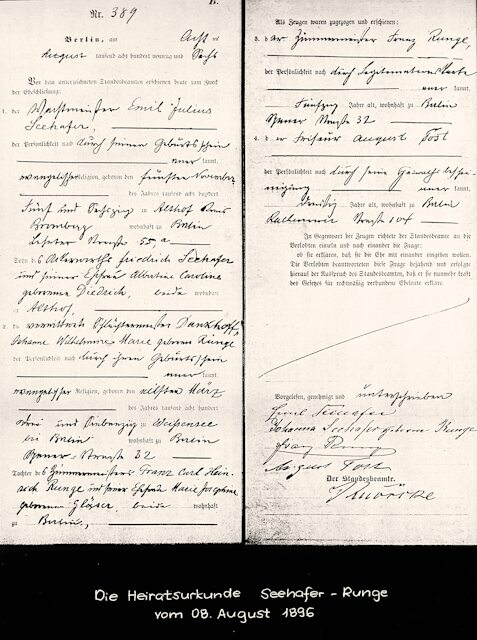 B.
Nr. 389
Berlin, am Acht ten
August tausend acht hundert neunzig und Sechs
Vor dem unterzeichneten Standesbeamten erschienen heute zum Zweck
der Eheschließung:
1. der Wachtmeister Emil Julius
Seehafer,
der Persönlichkeit nach durch seinen Geburtsschein
aner kannt,
evangelischer Religion, geboren den fünften November
des Jahres tausend acht hundert
Fünf und Sechszig zu Althof Kreis
Bromberg wohnhaft zu Berlin
Straße 55a
Sohn des Ackerwirths Friedrich Seehafer
und seiner Ehefrau Albertine Caroline
geborenen Diedrich, beide wohnhaft
zu Althof,
2. die verwittwete Schlächtermeister Dankhoff,
Johanne Wilhelmine Marie geborene Runge
der Persönlichkeit nach durch ihren Geburtsschein
aner kannt,
evangelischer Religion, geboren den elften März
des Jahres tausend acht hundert
und Siebenzig zu Weißensee
bei Berlin wohnhaft zu Berlin
Straße 32
Tochter des Zimmermeisters Franz Carl Hein-
rich Runge und seiner Ehefrau Marie Josephine
geborenen Gläser, beide wohnhaft
zu Berlin,
Als Zeugen waren zugezogen und erschienen:
3. der Zimmermeister Franz Runge,
der Persönlichkeit nach durch Legitimationskarte
aner kannt,
Fünfzig Jahre alt, wohnhaft zu Berlin
Straße 32
4. der Friseur August Tost
der Persönlichkeit nach durch seine Gewerbebeschei-
nigung aner kannt,
dreißig Jahre alt, wohnhaft zu Berlin
Straße 104
In Gegenwart der Zeugen richtete der Standesbeamte an die
Verlobten einzeln und nach einander die Frage:
ob sie erklären, daß sie die Ehe mit einander eingehen wollen.
Die Verlobten beantworteten diese Frage bejahend und erfolgte
hierauf der Ausspruch des Standesbeamten, daß er sie nunmehr kraft
des Gesetzes für rechtmäßig verbundene Eheleute erkläre.
Vorgelesen, genehmigt und unterschrieben
Emil Seehafer
Johanna Seehafer geborene Runge
Franz Runge
August Tost
Der Standesbeamte.
Die Heiratsurkunde Seehafer - Runge
vom 08. August 1896